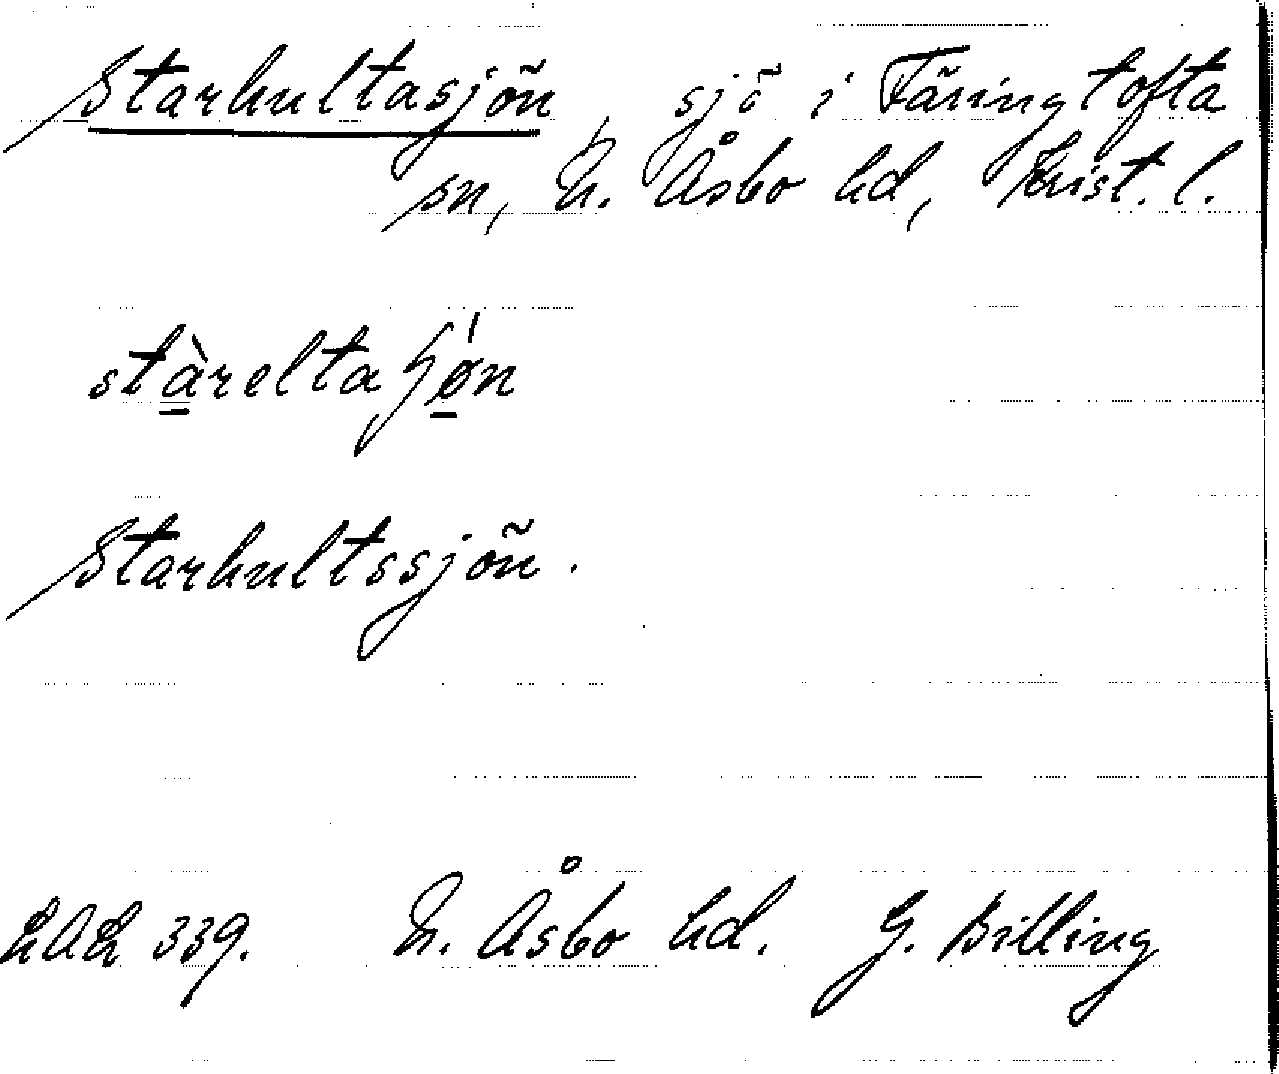 Starhultasjön, sjö i Färingtofta
sn, N. Åsbo hd, Krist. l.
stàreltaʃǿn
Starhultssjön.
LAL 339. N. Åsbo hd. G. Billing